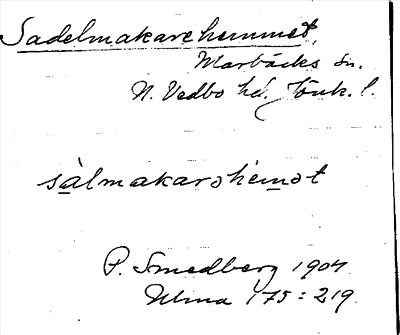 Sadelmakarehemmet,
Marbäcks sn.
N. Vedbo hd. Jönk. l.
sàlmakarəhemət
P. Smedberg 1904
Ulma 175:219.